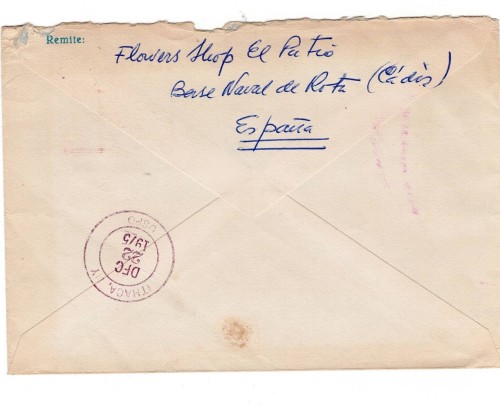 Remite:
Flowers Shop El Patio
Base Naval de Rota (Cádiz)
España
ITHACA, NY
DEC
22
1975
USPO